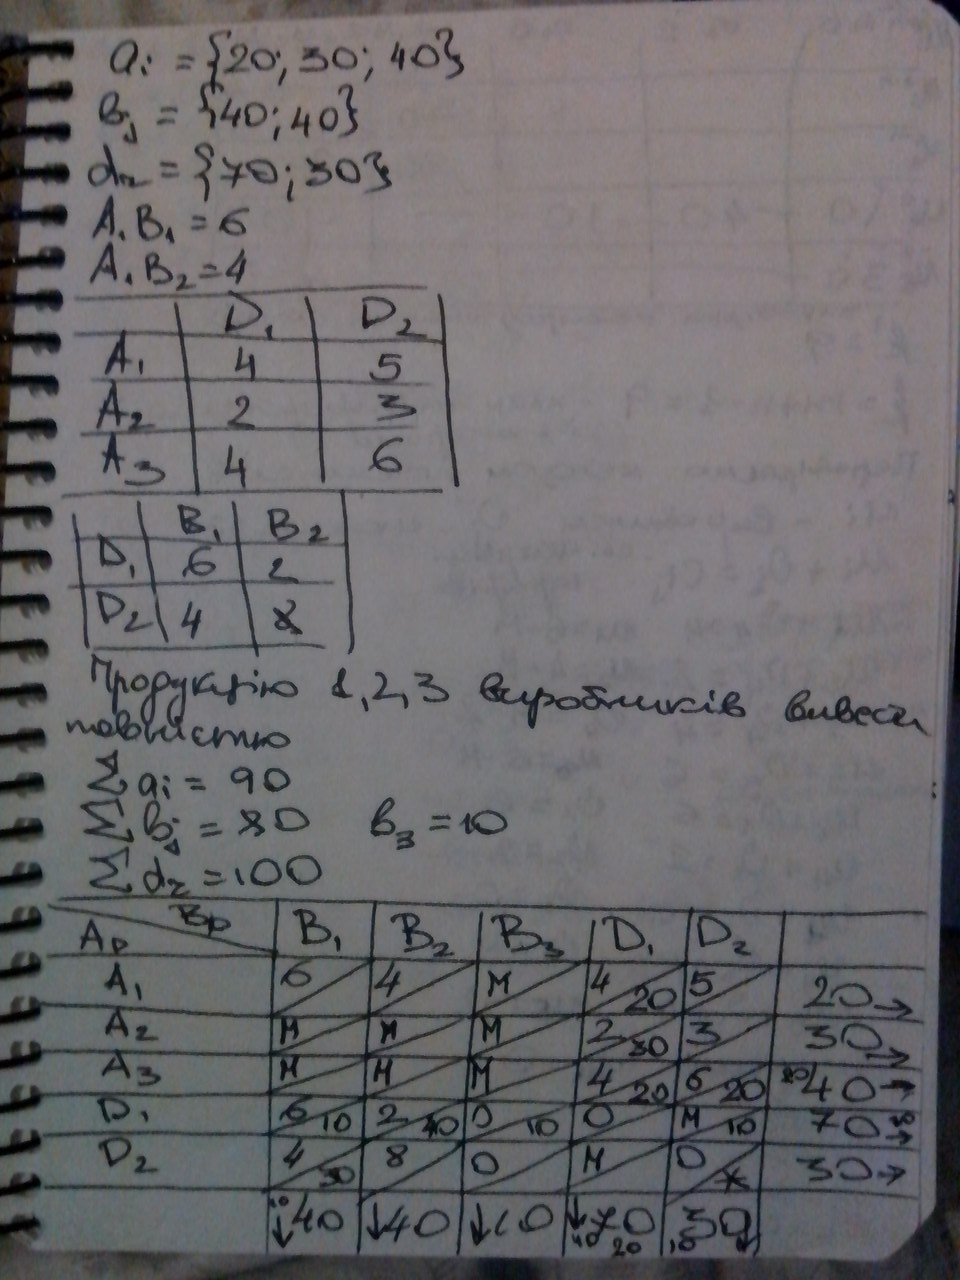 ai = {20; 30; 40}
вj = {40; 40}
dr = {70; 30}
A1B1 = 6
A1B2 = 4
D1 D2
A1 4 5
A2 2 3
A3 4 6
B1 B2
D1 6 2
D2 4 8
Продукцію 1, 2, 3 виробників вивести
повністю
∑ai = 90
∑вj = 80 в3 = 10
∑dr = 100
Ap Bp B1 B2 B3 D1 D2
A1 6 4 M 4 20 5 20→
A2 M M M 2 30 3 30→
A3 M M M 4 20 6 20 20 40→
D1 6 10 2 40 0 10 0 M 10 70→
D2 4 30 8 0 M 0 x 30→
10 ↓40 ↓40 ↓10 ↓70 40 20 10 30↓